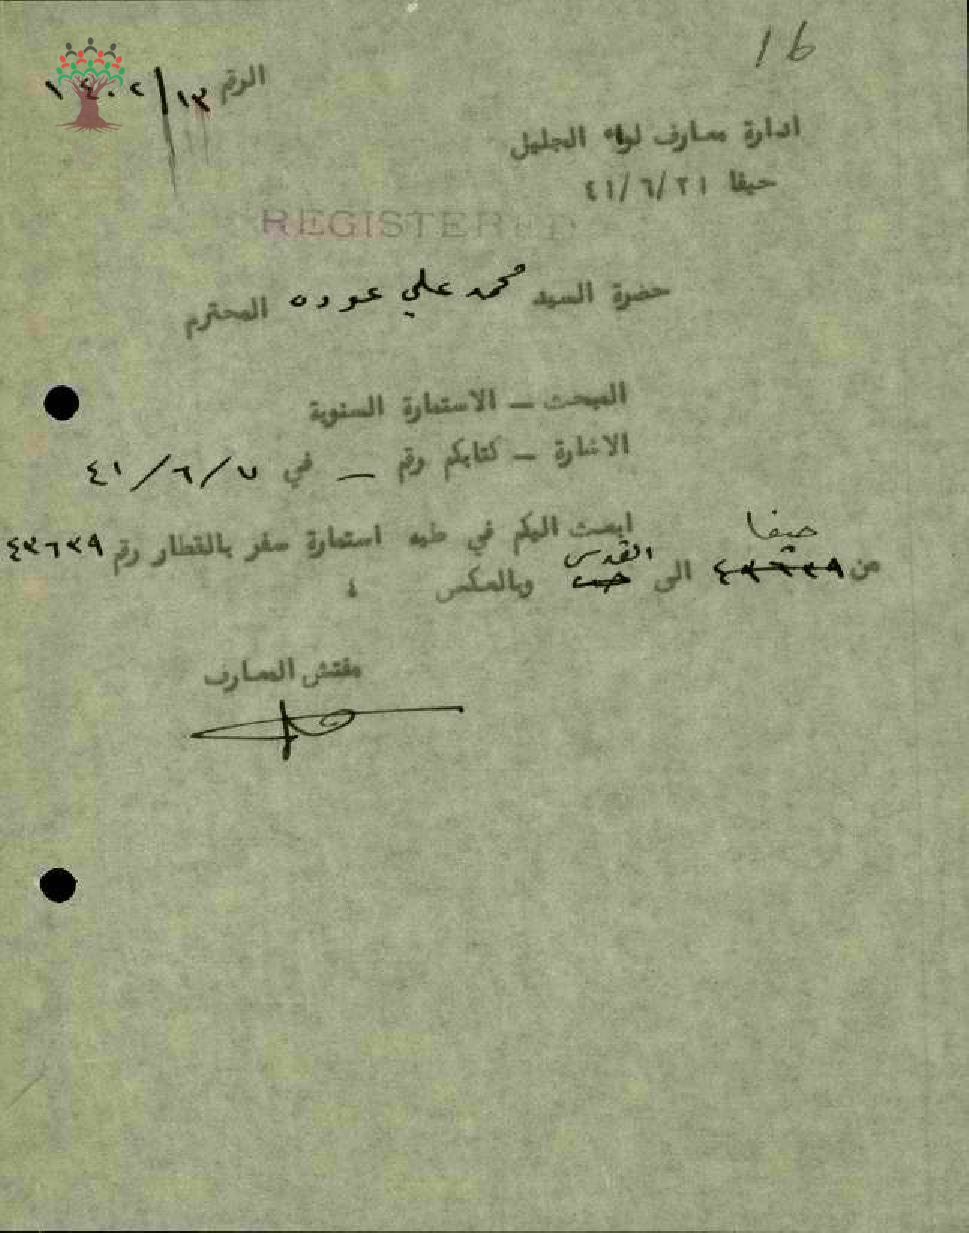 16
الرقم ١٣/١٤٠٢
ادارة معارف لواء الجليل
حيفا ٤١/٦/٢١
REGISTERED
حضرة السيد محمد علي عوده المحترم
المبحث ـ الاستمارة السنوية
الاشارة ـ كتابكم رقم ـ في ٤١/٦/٧
ابعث اليكم في طيه استمارة سفر بالقطار رقم ٤٣٦٣٩
حيفا القدس
من ٤٣٦٣٩ الى وبالعكس
مفتش المعارف